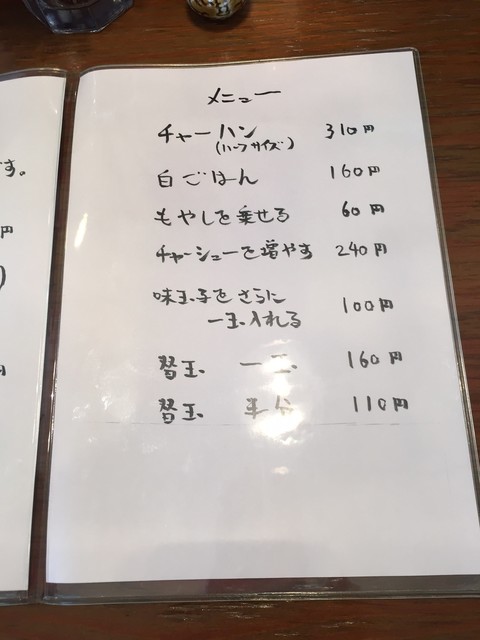 メニュー
チャーハン 310円
(ハーフサイズ)
白ごはん 160円
もやしを乗せる 60円
チャーシューを増やす 240円
味玉子をさらに
一玉入れる 100円
替玉 一玉 160円
替玉 半分 110円
す。
円
)